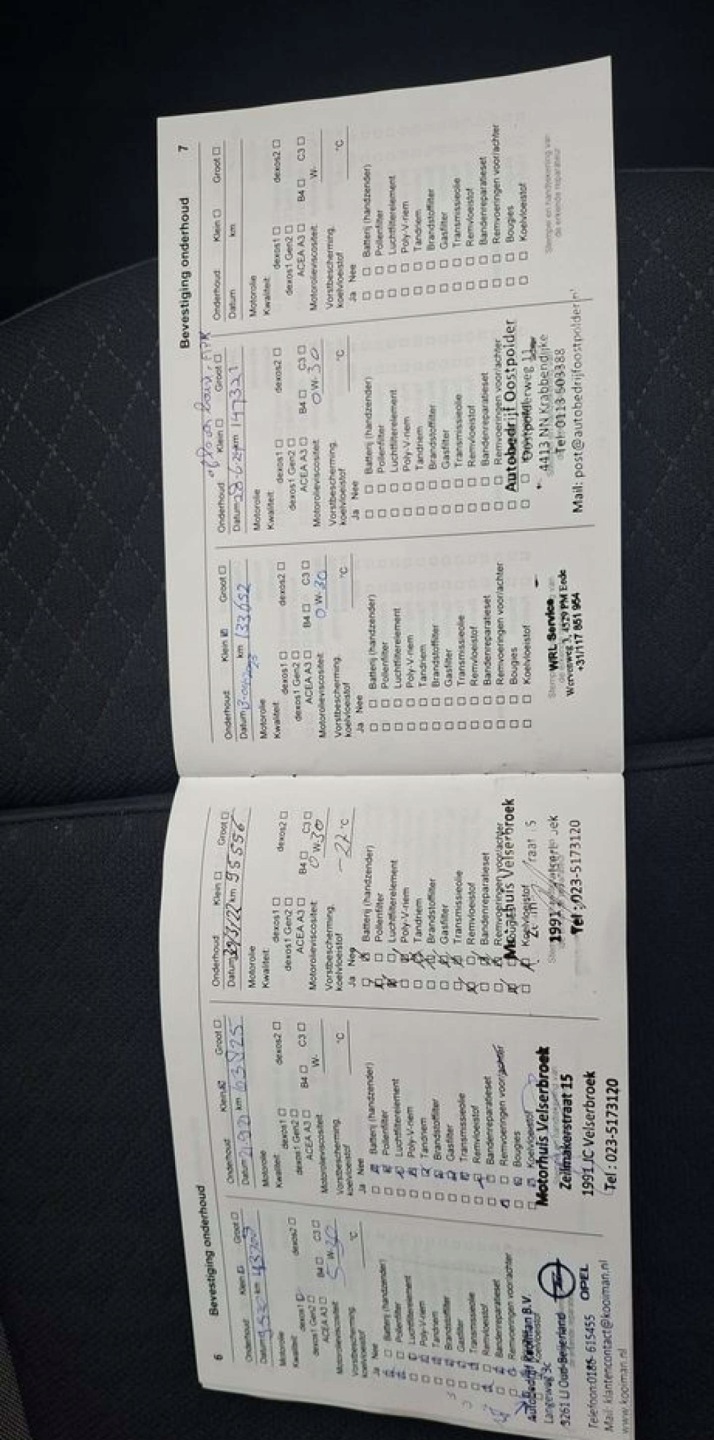 6 Bevestiging onderhoud
Onderhoud: Klein ☑ Groot ☐
Datum km
Motorolie
Kwaliteit: dexos1 ☐ dexos2 ☐
dexos1 Gen2 ☐
ACEA A3 ☐ B4 ☐ C3 ☐
Motorolieviscositeit: 5 W- 30
Vorstbescherming,
koelvloeistof °C
Ja Nee
Batterij (handzender)
Pollenfilter
Luchtfilterelement
Poly-V-riem
Tandriem
Brandstoffilter
Gasfilter
Transmissieolie
Remvloeistof
Bandenreparatieset
Remvoeringen voor/achter
Autobedrijf Kooiman B.V.
Langeweg 3c
3261 LJ Oud-Beijerland
OPEL
Telefoon:0186-615455
Mail: klantencontact@kooiman.nl
www.kooiman.nl
Onderhoud: Klein ☑ Groot ☐
Datum km 63825
Motorolie
Kwaliteit: dexos1 ☐ dexos2 ☐
dexos1 Gen2 ☐
ACEA A3 ☐ B4 ☐ C3 ☐
Motorolieviscositeit: W-
Vorstbescherming,
koelvloeistof °C
Ja Nee
Batterij (handzender)
Pollenfilter
Luchtfilterelement
Poly-V-riem
Tandriem
Brandstoffilter
Gasfilter
Transmissieolie
Remvloeistof
Bandenreparatieset
Remvoeringen voor/achter
Bougies
Koelvloeistof
Motorhuis Velserbroek
Zeilmakerstraat 15
1991 JC Velserbroek
Tel : 023-5173120
Onderhoud: Klein ☐ Groot ☐
Datum 29/3/22 km 95556
Motorolie
Kwaliteit: dexos1 ☐ dexos2 ☐
dexos1 Gen2 ☐
ACEA A3 ☐ B4 ☐ C3 ☐
Motorolieviscositeit: 0 W- 30
Vorstbescherming,
koelvloeistof -22 °C
Ja Nee
Batterij (handzender)
Pollenfilter
Luchtfilterelement
Poly-V-riem
Tandriem
Brandstoffilter
Gasfilter
Transmissieolie
Remvloeistof
Bandenreparatieset
Remvoeringen voor/achter
Bougies
Koelvloeistof
Velserbroek
1991
Tel : 023-5173120
Bevestiging onderhoud 7
Onderhoud: Klein ☑ Groot ☐
Datum km 133652
Motorolie
Kwaliteit: dexos1 ☐ dexos2 ☐
dexos1 Gen2 ☐
ACEA A3 ☐ B4 ☐ C3 ☐
Motorolieviscositeit: 0 W- 30
Vorstbescherming,
koelvloeistof °C
Ja Nee
☐ ☐ Batterij (handzender)
☐ ☐ Pollenfilter
☐ ☐ Luchtfilterelement
☐ ☐ Poly-V-riem
☐ ☐ Tandriem
☐ ☐ Brandstoffilter
☐ ☐ Gasfilter
☐ ☐ Transmissieolie
☐ ☐ Remvloeistof
☐ ☐ Bandenreparatieset
☐ ☐ Remvoeringen voor/achter
☐ ☐ Bougies
☐ ☐ Koelvloeistof
WRL Service
Wervenweg 3, 4529 PM Eede
+31/117 851 954
Onderhoud: Klein ☐ Groot ☐
Datum km 147321
Motorolie
Kwaliteit: dexos1 ☐ dexos2 ☐
dexos1 Gen2 ☐
ACEA A3 ☐ B4 ☐ C3 ☐
Motorolieviscositeit: 0 W- 30
Vorstbescherming,
koelvloeistof °C
Ja Nee
☐ ☐ Batterij (handzender)
☐ ☐ Pollenfilter
☐ ☐ Luchtfilterelement
☐ ☐ Poly-V-riem
☐ ☐ Tandriem
☐ ☐ Brandstoffilter
☐ ☐ Gasfilter
☐ ☐ Transmissieolie
☐ ☐ Remvloeistof
☐ ☐ Bandenreparatieset
☐ ☐ Remvoeringen voor/achter
Autobedrijf Oostpolder
Oostpolderweg 11
4413 NN Krabbendijke
Tel: 0113-503388
Mail: post@autobedrijfoostpolder.nl
Onderhoud: Klein ☐ Groot ☐
Datum km
Motorolie
Kwaliteit: dexos1 ☐ dexos2 ☐
dexos1 Gen2 ☐
ACEA A3 ☐ B4 ☐ C3 ☐
Motorolieviscositeit: W-
Vorstbescherming,
koelvloeistof °C
Ja Nee
☐ ☐ Batterij (handzender)
☐ ☐ Pollenfilter
☐ ☐ Luchtfilterelement
☐ ☐ Poly-V-riem
☐ ☐ Tandriem
☐ ☐ Brandstoffilter
☐ ☐ Gasfilter
☐ ☐ Transmissieolie
☐ ☐ Remvloeistof
☐ ☐ Bandenreparatieset
☐ ☐ Remvoeringen voor/achter
☐ ☐ Bougies
☐ ☐ Koelvloeistof
Stempel en handtekening van
de erkende reparateur